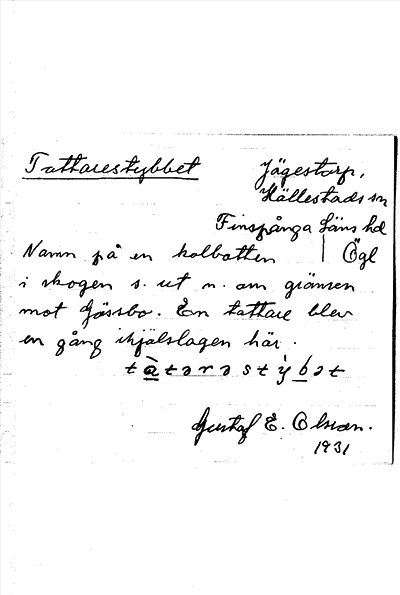 Tattarestybbet
Jägestorp,
Hällestads sn
Finspånga läns hd
Namn på en kolbotten
Ögl
i skogen s. ut n. om gränsen
mot Gässbo. En tattare blev
en gång ihjälslagen här.
tàtərəstỳbət
Gustaf E. Olsson.
1931